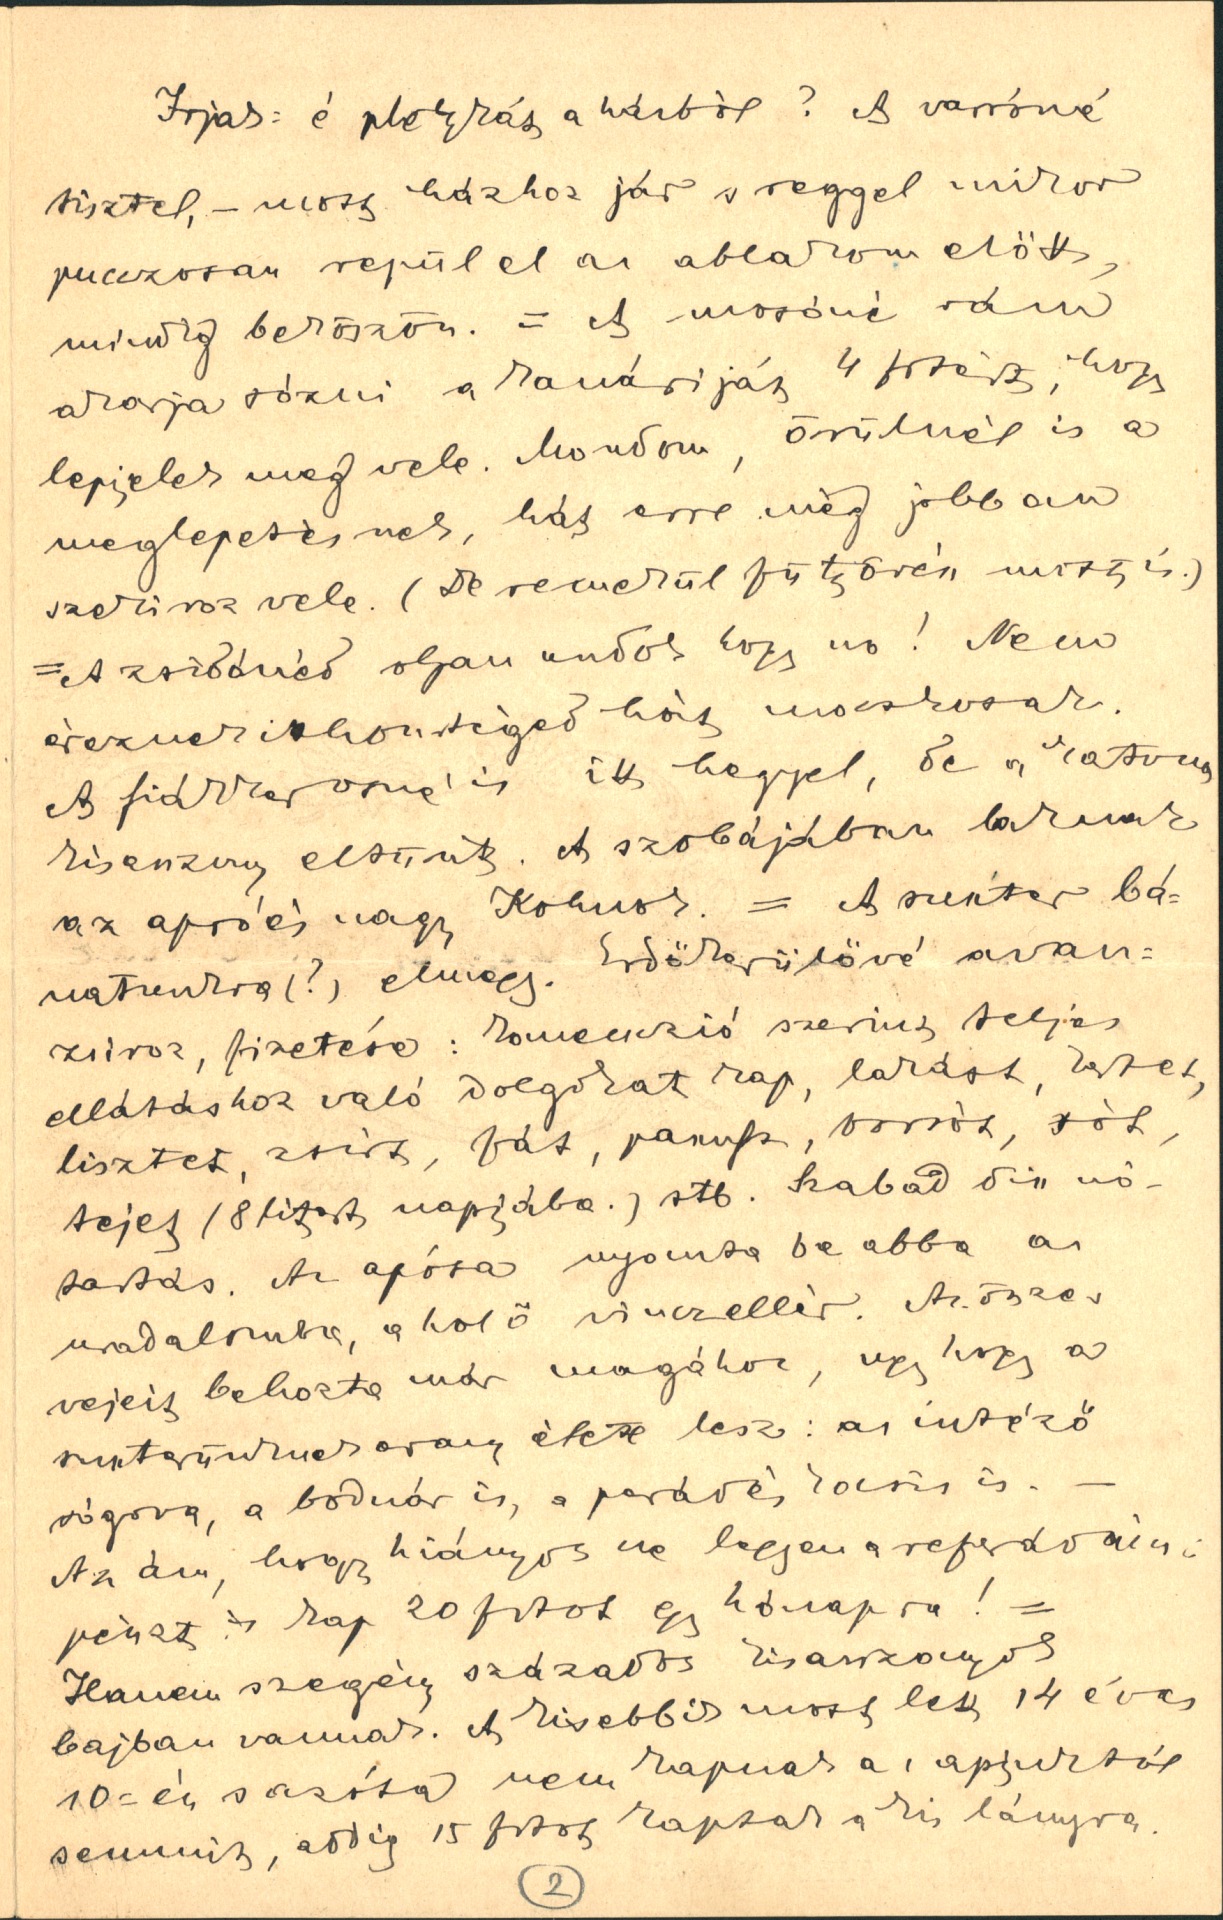 Irjak=é pletykát a házból? A varróné
tisztel, – most házhoz jár s reggel mikor
puczosan repül el az ablakom előtt,
mindig beköszön. = A mosóné rám
akarja sózni a kanáriját 4 frtért, hogy
lepjelek meg vele. Mondom, örülnél is a
meglepetésnek, hát erre még jobban
szekiroz vele. (De remekül fütyörész most is.)
= A zsidónéd olyan undok hogy no! Nem
érezner itthon téged hát mocskosak.
A fiákkerosné is itt hagyel, de a katona
kisasszony eltünt. A szobájában laknak
az apró és nagy Kohnok. = A sunter bá=
natunkra (?) elmegy. Erdőkerülővé avan=
zsiroz, fizetése: konvenczió szerint teljes
ellátáshoz való dolgokat kap, lakást, kertet,
lisztet, zsírt, fát, paszulyt, borsót, sót,
tejet (8 litert napjába.) stb. Szabad disznó-
tartás. Az apósa nyomta be abba az
uradalomba, a hol ő vinczellér. Az összes
vejeit behozta már magához, ugy hogy a
sunterünknek arany élete lesz: az intéző
sógora, a bodnár is, a parádés kocsis is. –
Az ám, hogy hiányos ne legyen a referádáim:
pénzt is kap 20 frtot egy hónapra! =
Hanem szegény százados kisasszonyok
bajban vannak. A kisebbik most lett 14 éves
10=én s azóta nem kapnak az apjuktól
semmit, addig 15 frtot kaptak a kis lányra.
2